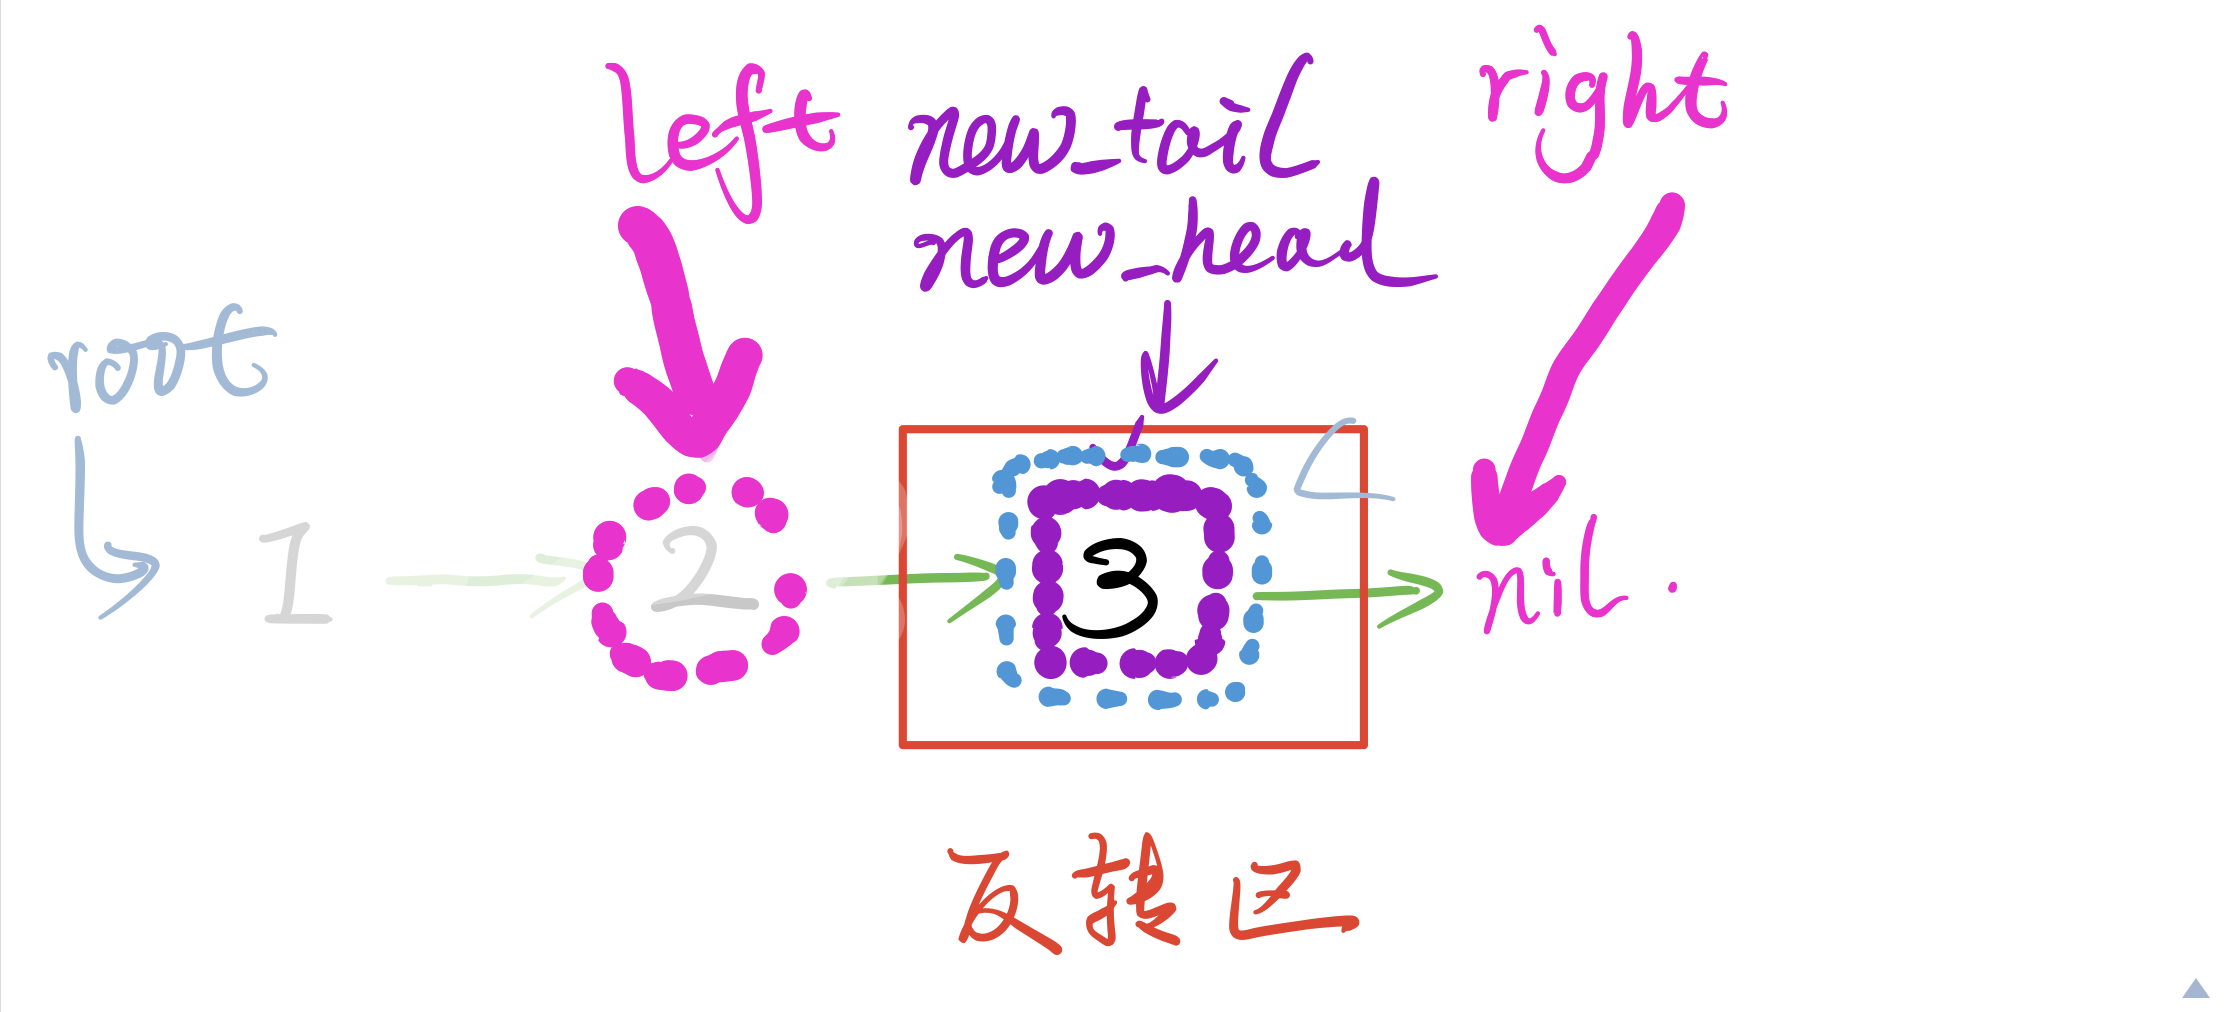 left
new_tail
new_head
right
root
1
2
3
nil.
反转区